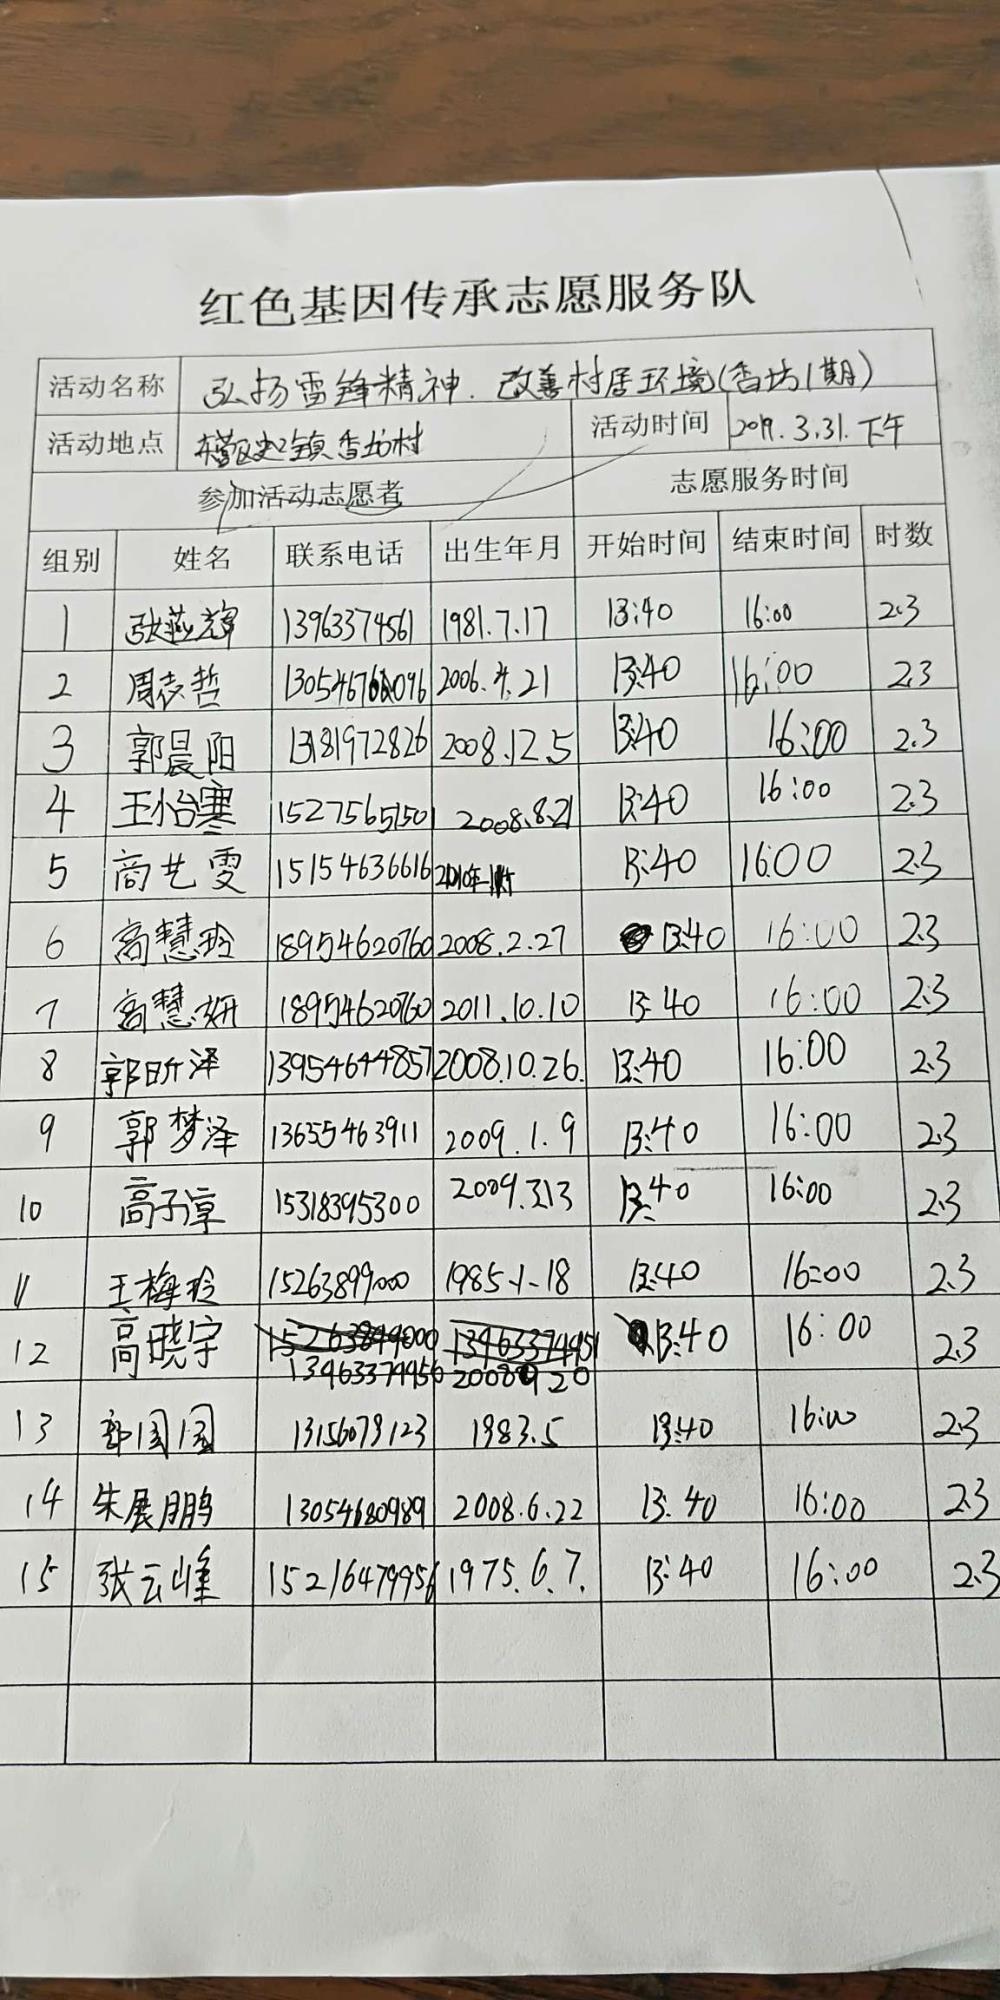 红色基因传承志愿服务队
活动名称 弘扬雷锋精神.改善村居环境(香坊1期)
活动地点 香坊村 活动时间 2019.3.31.下午
参加活动志愿者 志愿服务时间
组别 姓名 联系电话 出生年月 开始时间 结束时间 时数
1 张燕辉 13963374561 1981.7.17 13:40 16:00 2.3
2 周志哲 2006.4.21 13:40 16:00 2.3
3 郭晨阳 13181972826 2008.12.5 13:40 16:00 2.3
4 王怡寒 15275651501 2008.8.21 13:40 16:00 2.3
5 商艺雯 15154636616 13:40 16:00 2.3
6 高慧玲 18954620760 2008.2.27 13:40 16:00 2.3
7 高慧妍 18954620760 2011.10.10 13:40 16:00 2.3
8 郭昕泽 13954644857 2008.10.26. 13:40 16:00 2.3
9 郭梦泽 13655463911 2009.1.9 13:40 16:00 2.3
10 高子淳 15318395300 2009.3.13 13:40 16:00 2.3
11 王梅玲 15263899000 1985-1-18 13:40 16:00 2.3
12 高晓宇 13:40 16:00 2.3
13463379456 2008 9 20
13 郭国国 13156079123 1983.5 13:40 16:00 2.3
14 朱展鹏 13054680989 2008.6.22 13:40 16:00 2.3
15 张云峰 15216479956 1975.6.7. 13:40 16:00 2.3